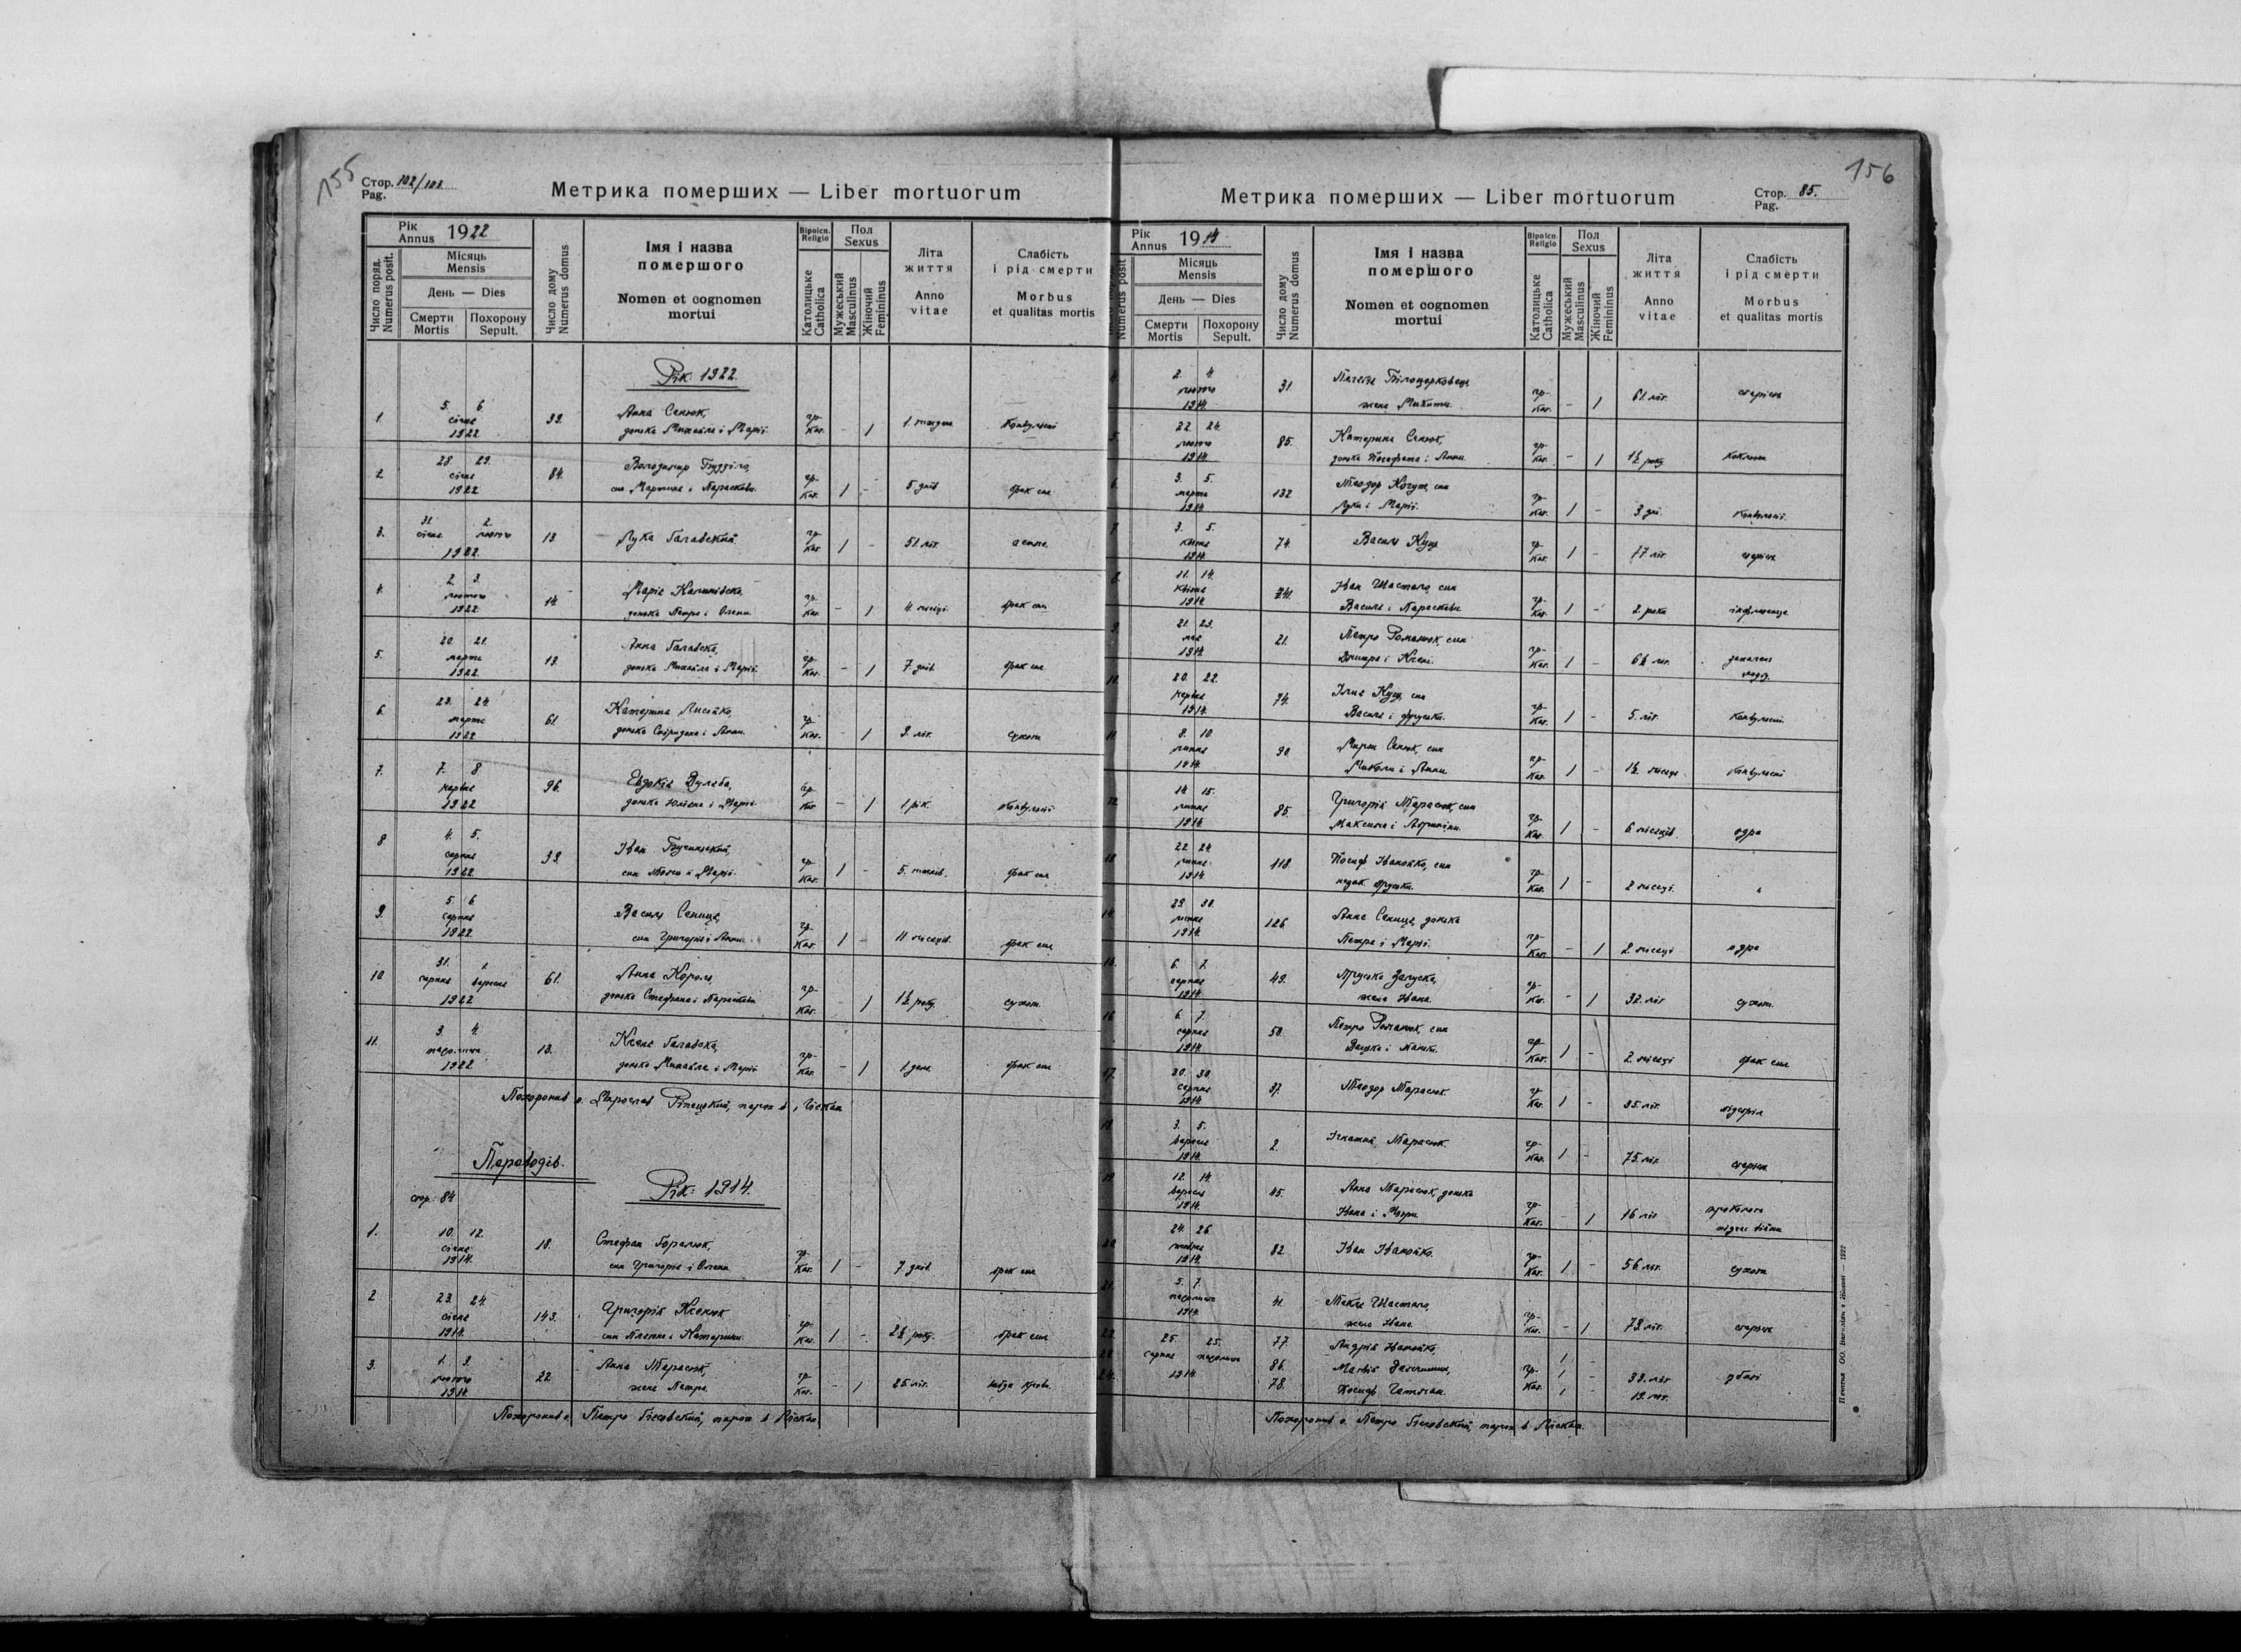 155
Стор. 102/103
Pag.
Метрика померших — Liber mortuorum
Рік
Annus 1922
Місяць
Mensis
День — Dies
Смерти
Mortis
Похорону
Sepult.
Число поряд.
Numerus posit.
Число дому
Numerus domus
Імя і назва
помершого
Nomen et cognomen
mortui
Віроісп.
Religio
Католицьке
Catholica
Пол
Sexus
Мужеський
Masculinus
Жіночий
Femininus
Літа
життя
Anno
vitae
Слабість
і рід смерти
Morbus
et qualitas mortis
Рік: 1922.
1. 5. 6. січня 1922 39. Анна Сенюк,
донька Михайла і Марії гр-кат. - 1 1. тиждень Конвульсії
2 28 29. січня 1922 84. Володимир
син Мартина і Параскеви гр-кат. 1 - 5 днів брак сил
3. 31. січня 2. лютого 1922. 13 Лука Галавский гр-кат. 1 - 51. літ. астма
4. 2. 3. лютого 1922 14. Марія Калинівска,
донька Петра і Олени гр-кат. - 1 4. місяці брак сил
5. 20. 21. марта 1922 13. Анна Галавска,
донька Михайла і Марії гр-кат. - 1 7 днів брак сил
6. 23. 24. марта 1922 61. Катерина
донька Спіридона і Анни гр-кат. - 1 9. літ. сухоти
7. 7. 8. червня 1922 96. Евдокія Дулеба,
донька Юліяна і Марії гр-кат - 1 1 рік. Конвульсії
8 4. 5. серпня 1922 39. Іван Бучинский,
син і Марії гр-кат. 1 - 5. тижнів. брак сил
9. 5. 6. серпня 1922 Василь Сениця,
син Григорія і Анни гр-кат. 1 - 11 місяців. брак сил
10. 31. серпня 1. вересня 1922 61. Анна Король,
донька Стефана і Параскеви гр-кат. - 1 1½ року. сухоти
11. 3. 4. падолиста 1922 13. Ксеня Галавска,
донька Михайла і Марії гр-кат. - 1 1 день брак сил
Похоронив о. Мирослав Ріпецький, парох в Лісках
Переводів.
Рік: 1914.
стор.: 84
1. 10. 12. січня 1914. 18. Стефан Горалюк,
син Григорія і Олени гр-кат. 1 - 7 днів брак сил
2 23. 24. січня 1914. 143. Григорій Ксенюк
син і Катерини гр-кат. 1 - 2½ року. брак сил
3. 1. 3. лютого 1914. 22 Анна Тарасюк,
жена Петра. гр-кат. - 1 25 літ. крови.
Похоронив о. Петро парох в Лісках.
156
Стор. 85.
Pag.
Метрика померших — Liber mortuorum
Рік
Annus 1914
Місяць
Mensis
День — Dies
Смерти
Mortis
Похорону
Sepult.
Numerus posit
Число дому
Numerus domus
Імя і назва
помершого
Nomen et cognomen
mortui
Віроісп.
Religio
Католицьке
Catholica
Пол
Sexus
Мужеський
Masculinus
Жіночий
Femininus
Літа
життя
Anno
vitae
Слабість
і рід смерти
Morbus
et qualitas mortis
4. 2. 4. лютого 1914. 31. Білоцерковець,
жена Микити. гр-кат. - 1 61. літ. старість
5. 22. 24. лютого 1914. 85. Катерина Сенюк,
донька Йосафата і Анни. гр-кат. - 1 1½ року коклюш
6. 3. 5. марта 1914. 132 Теодор Когут, син
Луки і Марії. гр-кат. 1 - 3 дні. Конвульсії.
7. 3. 5. квітня 1914. 74. Василь Кущ гр-кат. 1 - 77 літ старість
8. 11. 14. квітня 1914. 241. Іван Шастало, син
Василя і Параскеви гр-кат. 1 - 2. роки інфлюенца
9. 21. 23. мая 1914. 21. Петро Романюк, син
Дмитра і Ксені. гр-кат. 1 - 6½ літ. запалення
10. 20. 22. червня 1914. 74. Ілия Кущ, син
Василя і гр-кат. 1 - 5. літ. Конвульсії.
11. 8. 10. липня 1914. 90 Мирон Сенюк, син
Миколи і Анни. гр-кат. 1 - 1½ місяця Конвульсії
12. 14. 15. липня 1914. 85. Григорій Тарасюк, син
Максима і гр-кат. 1 - 6 місяців. одра
13. 22. 24. липня 1914. 118. Йосиф Іванойко, син
гр-кат. 1 - 2 місяці. "
14. 29. 30. липня 1914. 126 Анна Сениця, донька
Петра і Марії. гр-кат. - 1 2. місяці одра
15. 6. 7. серпня 1914. 49. Загуска,
жена Івана. гр-кат. - 1 32. літ сухоти
16. 6. 7. серпня 1914. 50. Петро Романюк, син
гр-кат. 1 - 2. місяці брак сил
17. 20. 30. серпня 1914. 37. Теодор Тарасюк гр-кат. 1 - 35. літ.
18. 3. 5. вересня 1914. 2. Ігнатий Тарасюк. гр-кат. 1 - 75. літ. старість
19. 12. 14. вересня 1914. 45. Анна Тарасюк, донька
Івана і гр-кат. - 1 16 літ
20. 24. 26. жовтня 1914. 82. Іван Іванойко. гр-кат. 1 - 56. літ. сухоти
21. 5. 7. падолиста 1914. 41. Текля Шастало,
жена Івана. гр-кат. - 1 73. літ. старість
22. 25. серпня 25. падолиста 1914. 77. Андрій Іванойко,
23. 86. Матвій
24. 78. Йосиф гр-кат. 38. літ 19. літ. убиті
Похоронив о. Петро парох в Лісках.
Печатня ОО. Василіян в Жовкві — 1922